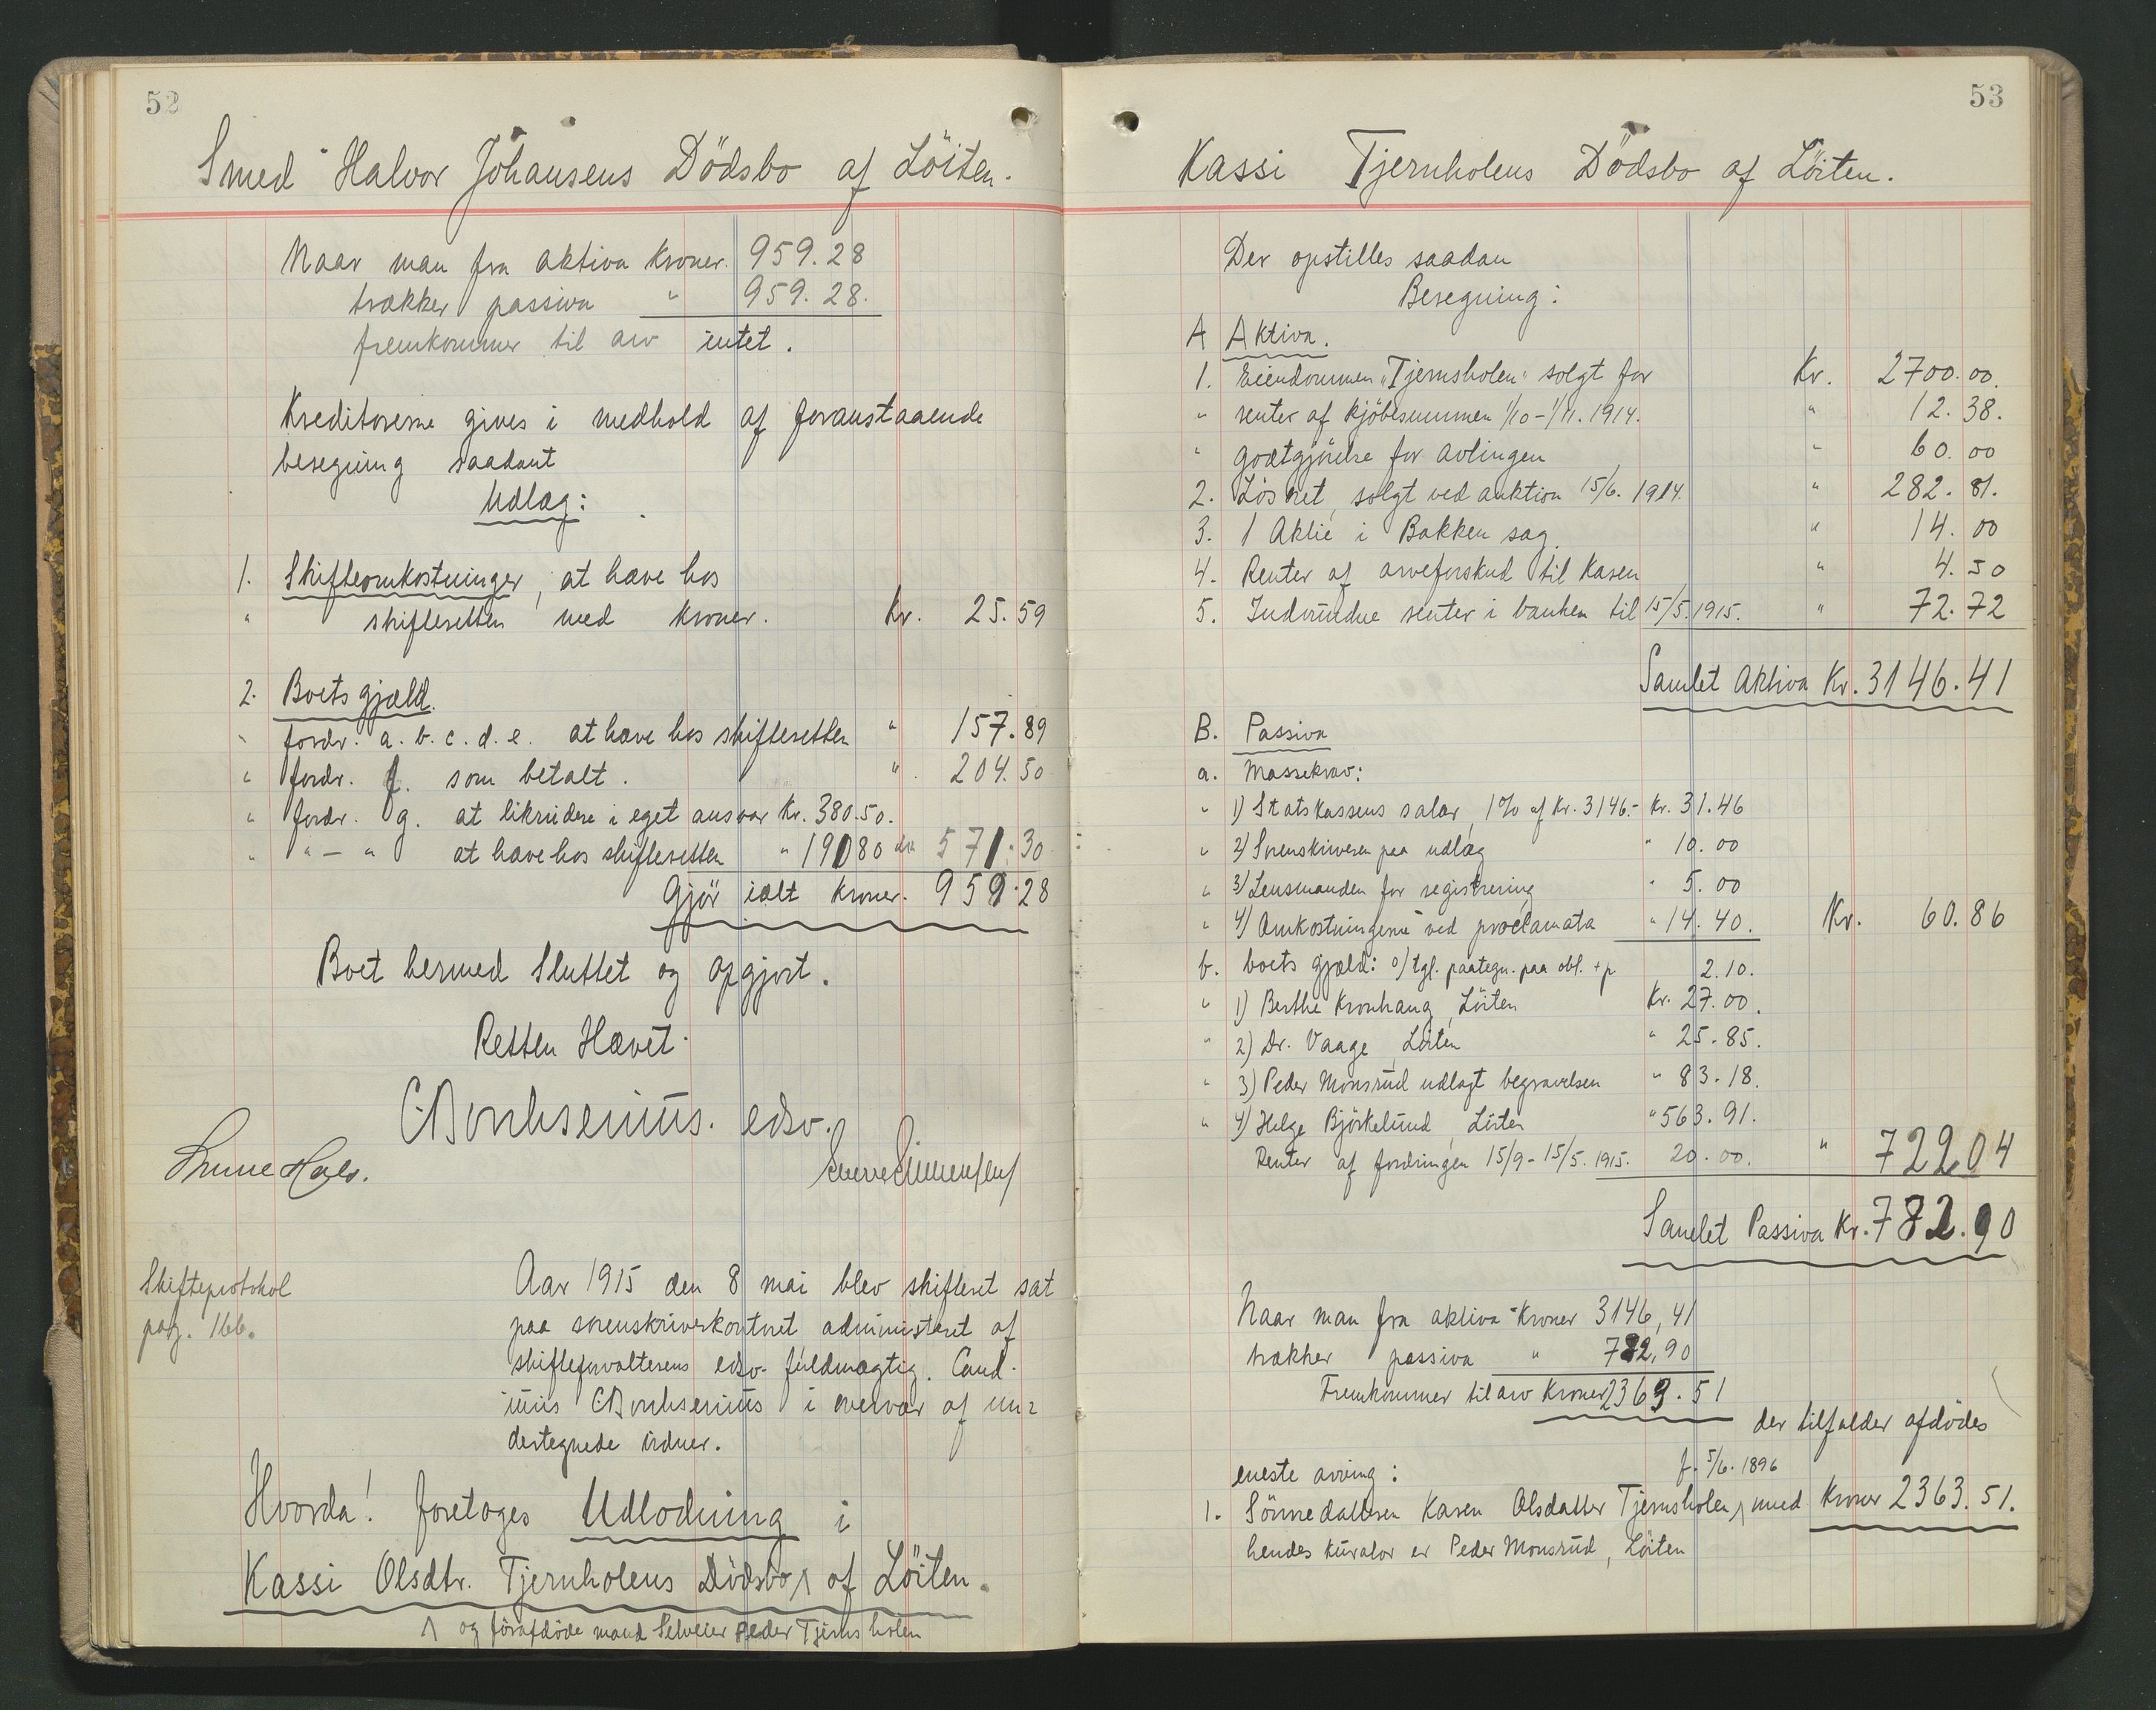 52
Smed Halvor Johansens Dödsbo af Löiten.
Naar man fra aktiva Kroner. 959.28
trækker passiva " 959.28.
fremkommer til arv intet.
Kreditorerne gives i medhold af foranstaaende
beregning saadant
Udlæg:
1. Skifteomkostninger, at hæve hos
" skifteretten med kroner. Kr. 25.59
2. Boets gjæld.
" fordr. a. b. c. d. e. at hæve hos skifteretten " 157.89
" fordr. f. som betalt. " 204.50
" fordr. g. at likvidere i eget ansvar Kr. 380.50.
" " — " at hæve hos skifteretten " 190 80 571.30
Gjör ialt kroner. 959.28
Boet hermed Sluttet og opgjort.
Retten Hævet.
edsv.
Skifteprotokol
pag. 166.
Aar 1915 den 8 mai blev skifteret sat
paa sorenskriverkontoret administeret af
skifteforvalterens edsv. fuldmægtig. Cand.
iuris i overvær af un=
dertegnede vidner.
Hvorda! foretoges Udlodning i
Kassi Olsdtr. Tjernholens Dödsbo ʌ af Löiten.
ʌ og förafdöde mand Selveier Peder Tjernsholen
53
Kassi Tjernholens Dödsbo af Löiten.
Der opstilles saadan
Beregning:
A Aktiva.
1. Eiendommen "Tjernsholen" solgt for Kr. 2700.00.
" renter af kjöbesummen 1/10 - 1/11. 1914. " 12.38.
" godtgjörelse for avlingen " 60.00
2. Lösöret, solgt ved auktion 15/6. 1914. " 282.81.
3. 1 Aktie i Bakken sag. " 14.00
4. Renter af arveforskud til Karen " 4.50
5. Indvundne renter i banken til 15/5.1915. " 72.72
Samlet Aktiva Kr. 3146.41
B. Passiva
a. Massekrav:
" 1) Statskassens salær, 1% af Kr. 3146.- Kr. 31.46
" 2) Sorenskriveren paa udlæg " 10.00
" 3) Lensmanden for registrering " 5.00
" 4) Omkostningerne ved proclamata " 14.40. Kr. 60.86
b. boets gjæld: 0) tgl. paategn. paa obl. + p. 2.10.
" 1) Berthe Kronhaug, Löiten Kr. 27.00.
" 2) Dr. Vaage, Löiten " 25.85.
" 3) Peder Monsrud udlagt begravelsen " 83.18.
" 4) Helge Björkelund, Löiten " 563.91.
Renter af fordringen 15/9 - 15/5. 1915. 20.00. " 722.04
Samlet Passiva Kr. 782.90
Naar man fra aktiva Kroner 3146,41
trækker passiva " 782,90
Fremkommer til arv Kroner 2363.51
der tilfalder afdödes
eneste arving: f. 5/6. 1896
1. Sönnedatteren Karen Olsdatter Tjernsholen, ʌ med Kroner 2363.51.
hendes kurator er Peder Monsrud, Löiten